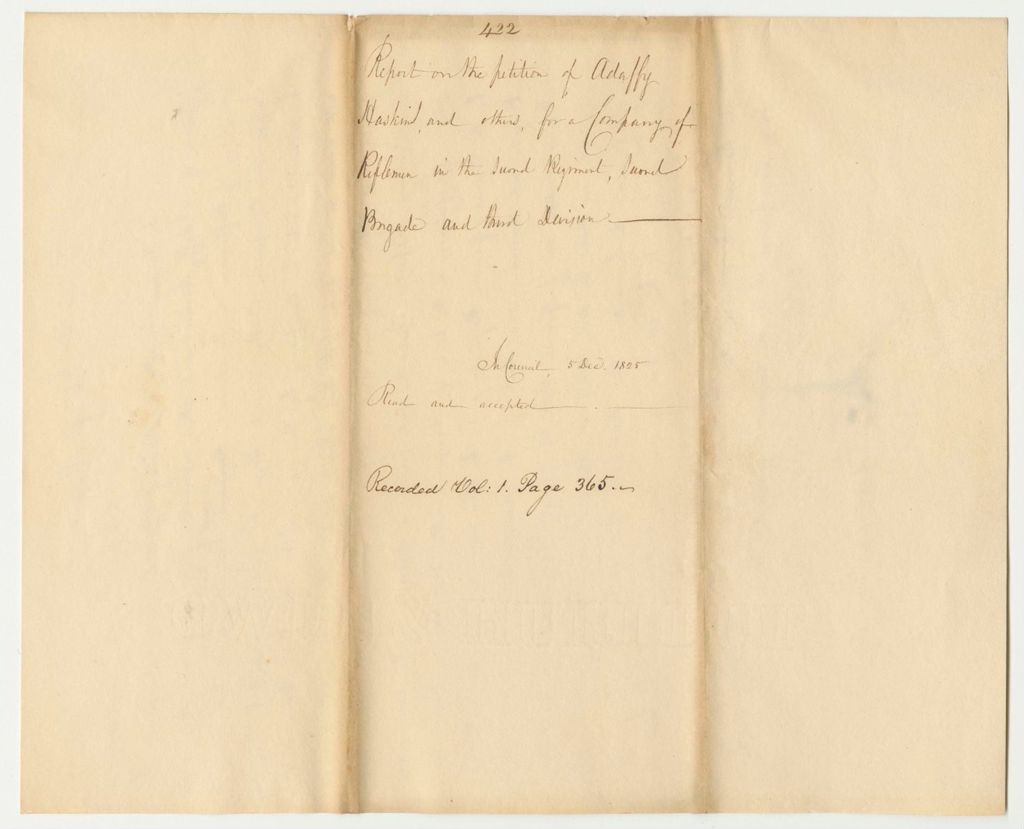 422
Report on the petition of Adaffy
Haskins, and others, for a Company of
Riflemen in the Second Regiment, Second
Brigade and Third Division
In Council, 5 Dec. 1825
Read and accepted
Recorded Vol: 1. Page 365.